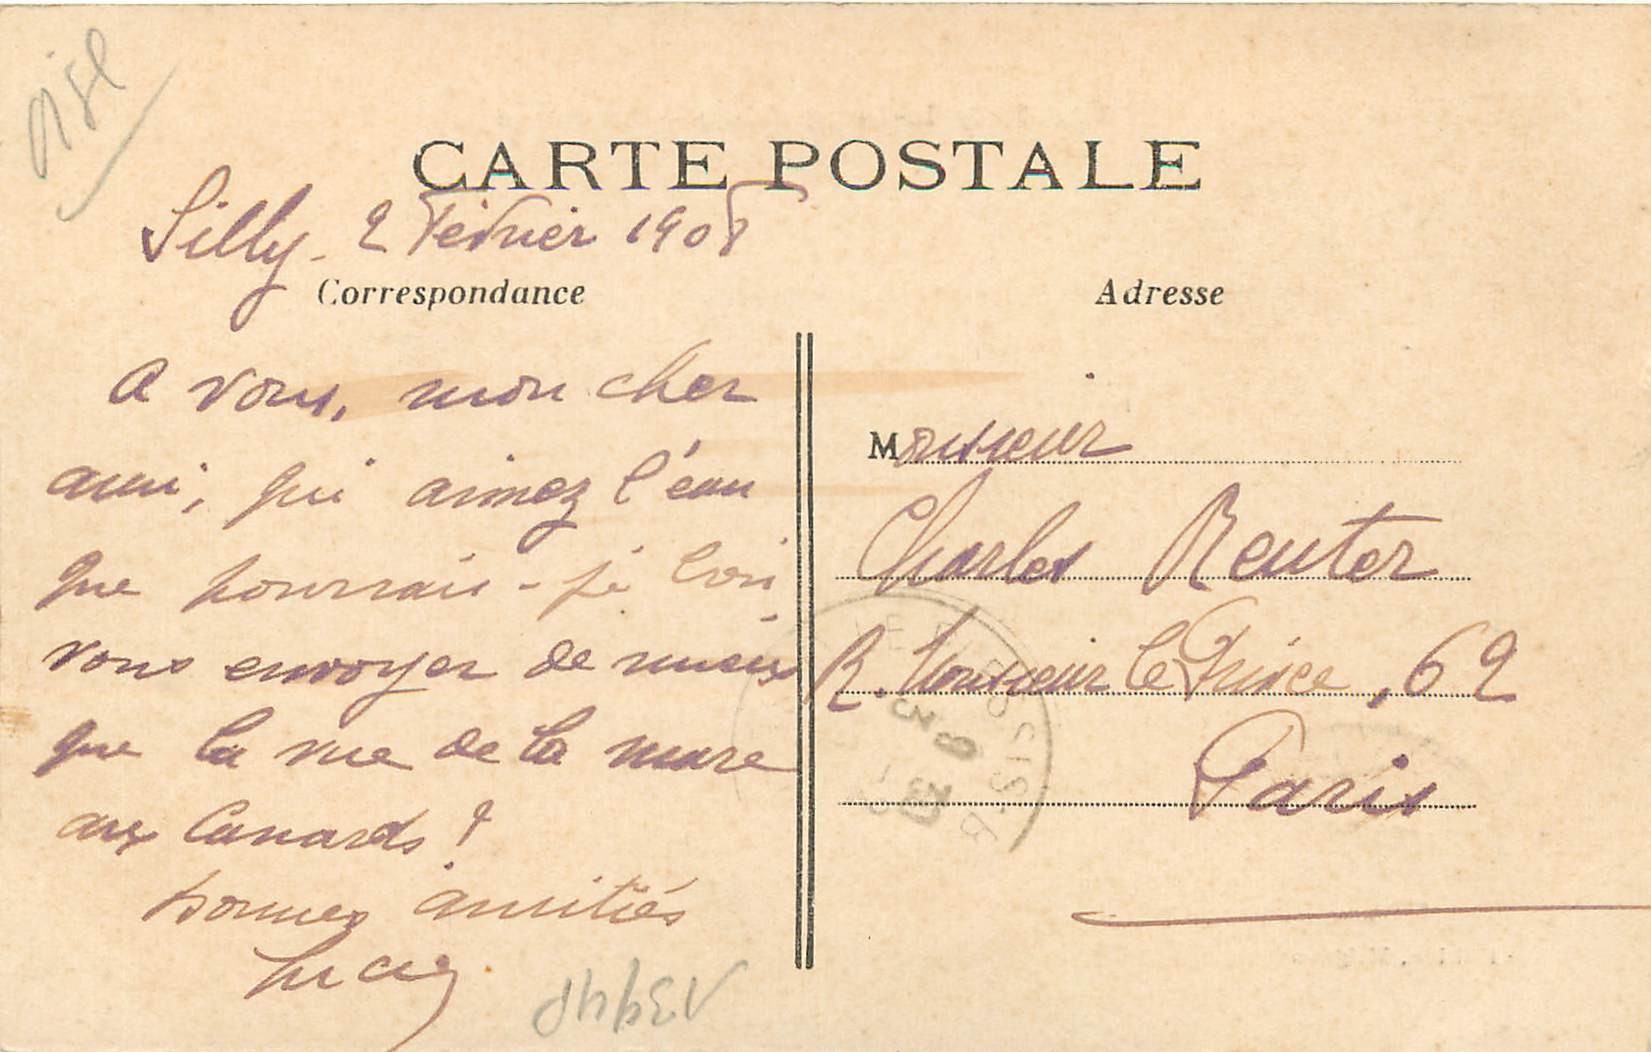 Oise
CARTE POSTALE
Silly - 2 Février 1908
Correspondance
a vous, mon cher
ami, qui aimez l'eau
que pourrais-je bien
vous envoyer de mieux
que la vue de la mare
aux Canards ?
bonnes amitiés
Adresse
Monsieur
Charles Reuter
R. Monsieur le Prince, 62
Paris